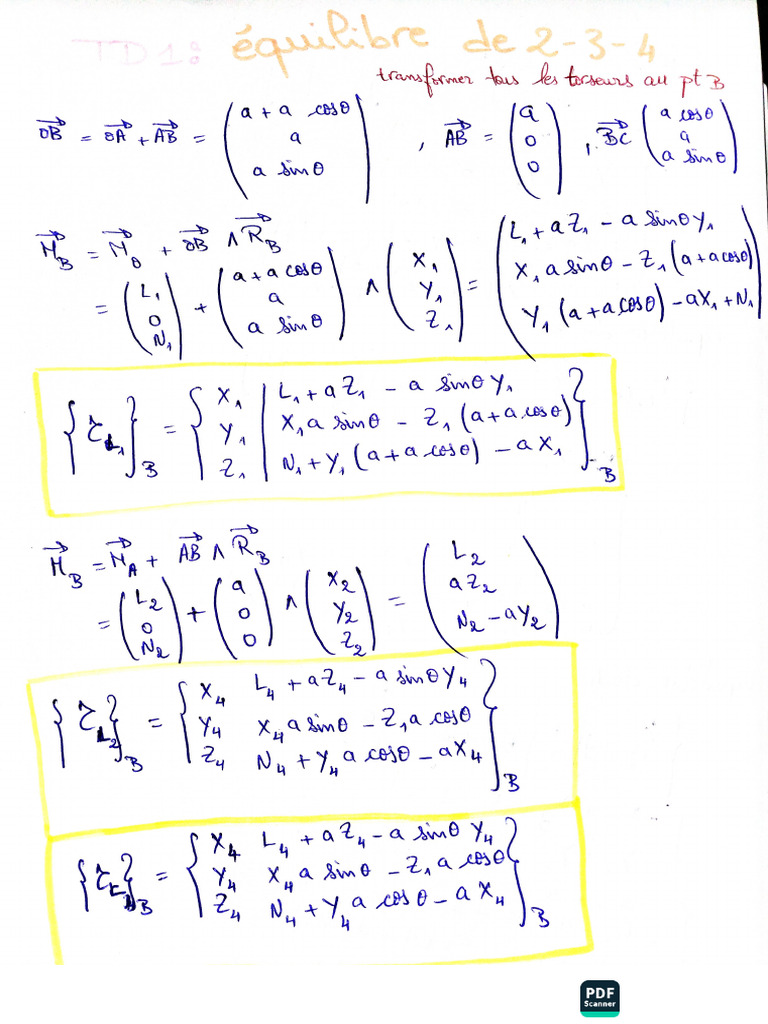 TD1: équilibre de 2-3-4
transformer tous les torseurs au pt B
OB = OA + AB = (a + a cosθ, a, a sinθ) , AB = (a, 0, 0) , BC (a cosθ, a, a sinθ)
M_B = M_O + OB ∧ R_B
= (L₁, 0, N₁) + (a + a cosθ, a, a sinθ) ∧ (X₁, Y₁, Z₁) = (L₁ + aZ₁ - a sinθ Y₁, X₁ a sinθ - Z₁ (a + a cosθ), Y₁ (a + a cosθ) - aX₁ + N₁)
{τ_L₁}_B = {X₁ | L₁ + aZ₁ - a sinθ Y₁
Y₁ | X₁ a sinθ - Z₁ (a + a cosθ)
Z₁ | N₁ + Y₁ (a + a cosθ) - a X₁}_B
M_B = M_A + AB ∧ R_B
= (L₂, 0, N₂) + (a, 0, 0) ∧ (X₂, Y₂, Z₂) = (L₂, aZ₂, N₂ - aY₂)
{τ_L₂}_B = {X₄ L₄ + aZ₄ - a sinθ Y₄
Y₄ X₄ a sinθ - Z₁ a cosθ
Z₄ N₄ + Y₄ a cosθ - aX₄}_B
{τ_L}_B = {X₄ L₄ + aZ₄ - a sinθ Y₄
Y₄ X₄ a sinθ - Z₁ a cosθ
Z₄ N₄ + Y₄ a cosθ - a X₄}_B
PDF
Scanner